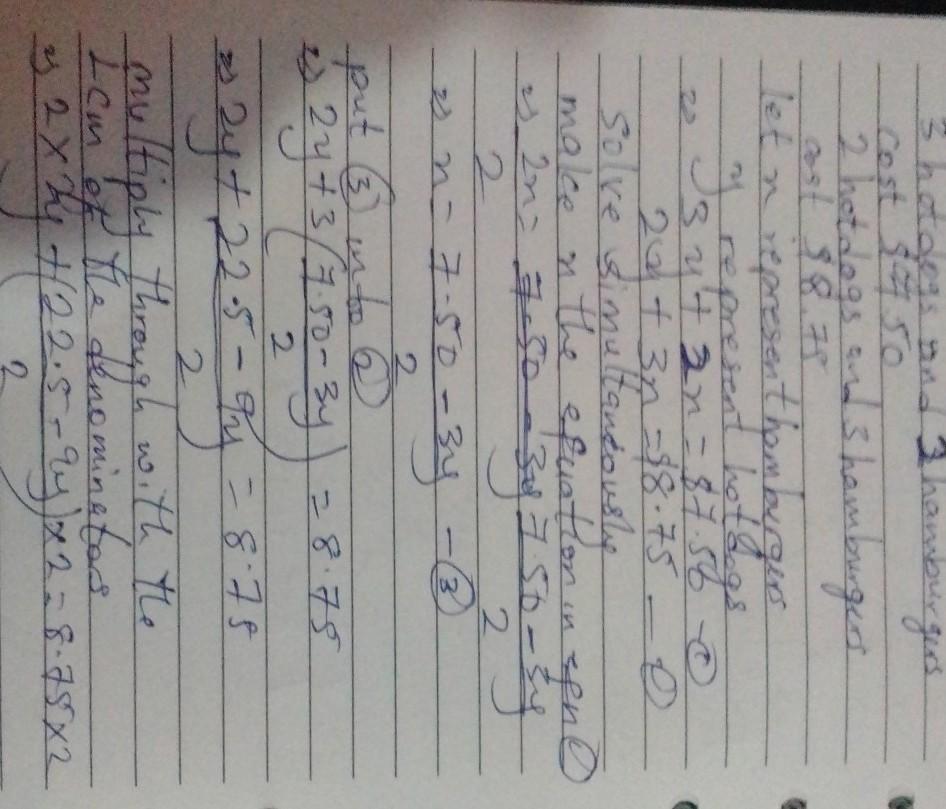 3 hotdogs and 2 hamburgers
cost $7.50
2 hotdogs and 3 hamburgers
cost $8.75
let x represent hamburgers
y represent hotdogs
=> 3y + 2x = $7.50 - ①
2y + 3x = $8.75 - ②
Solve simultaneously
make x the equation in eqn ①
=> 2x = 7.50 - 3y
2 2
=> x = 7.50 - 3y - ③
2
put ③ into ②
=> 2y + 3(7.50 - 3y) = 8.75
2
=> 2y + 22.5 - 9y = 8.75
2
multiply through with the
Lcm of the denominators
=> 2 x 2y + (22.5 - 9y) x 2 = 8.75 x 2
2